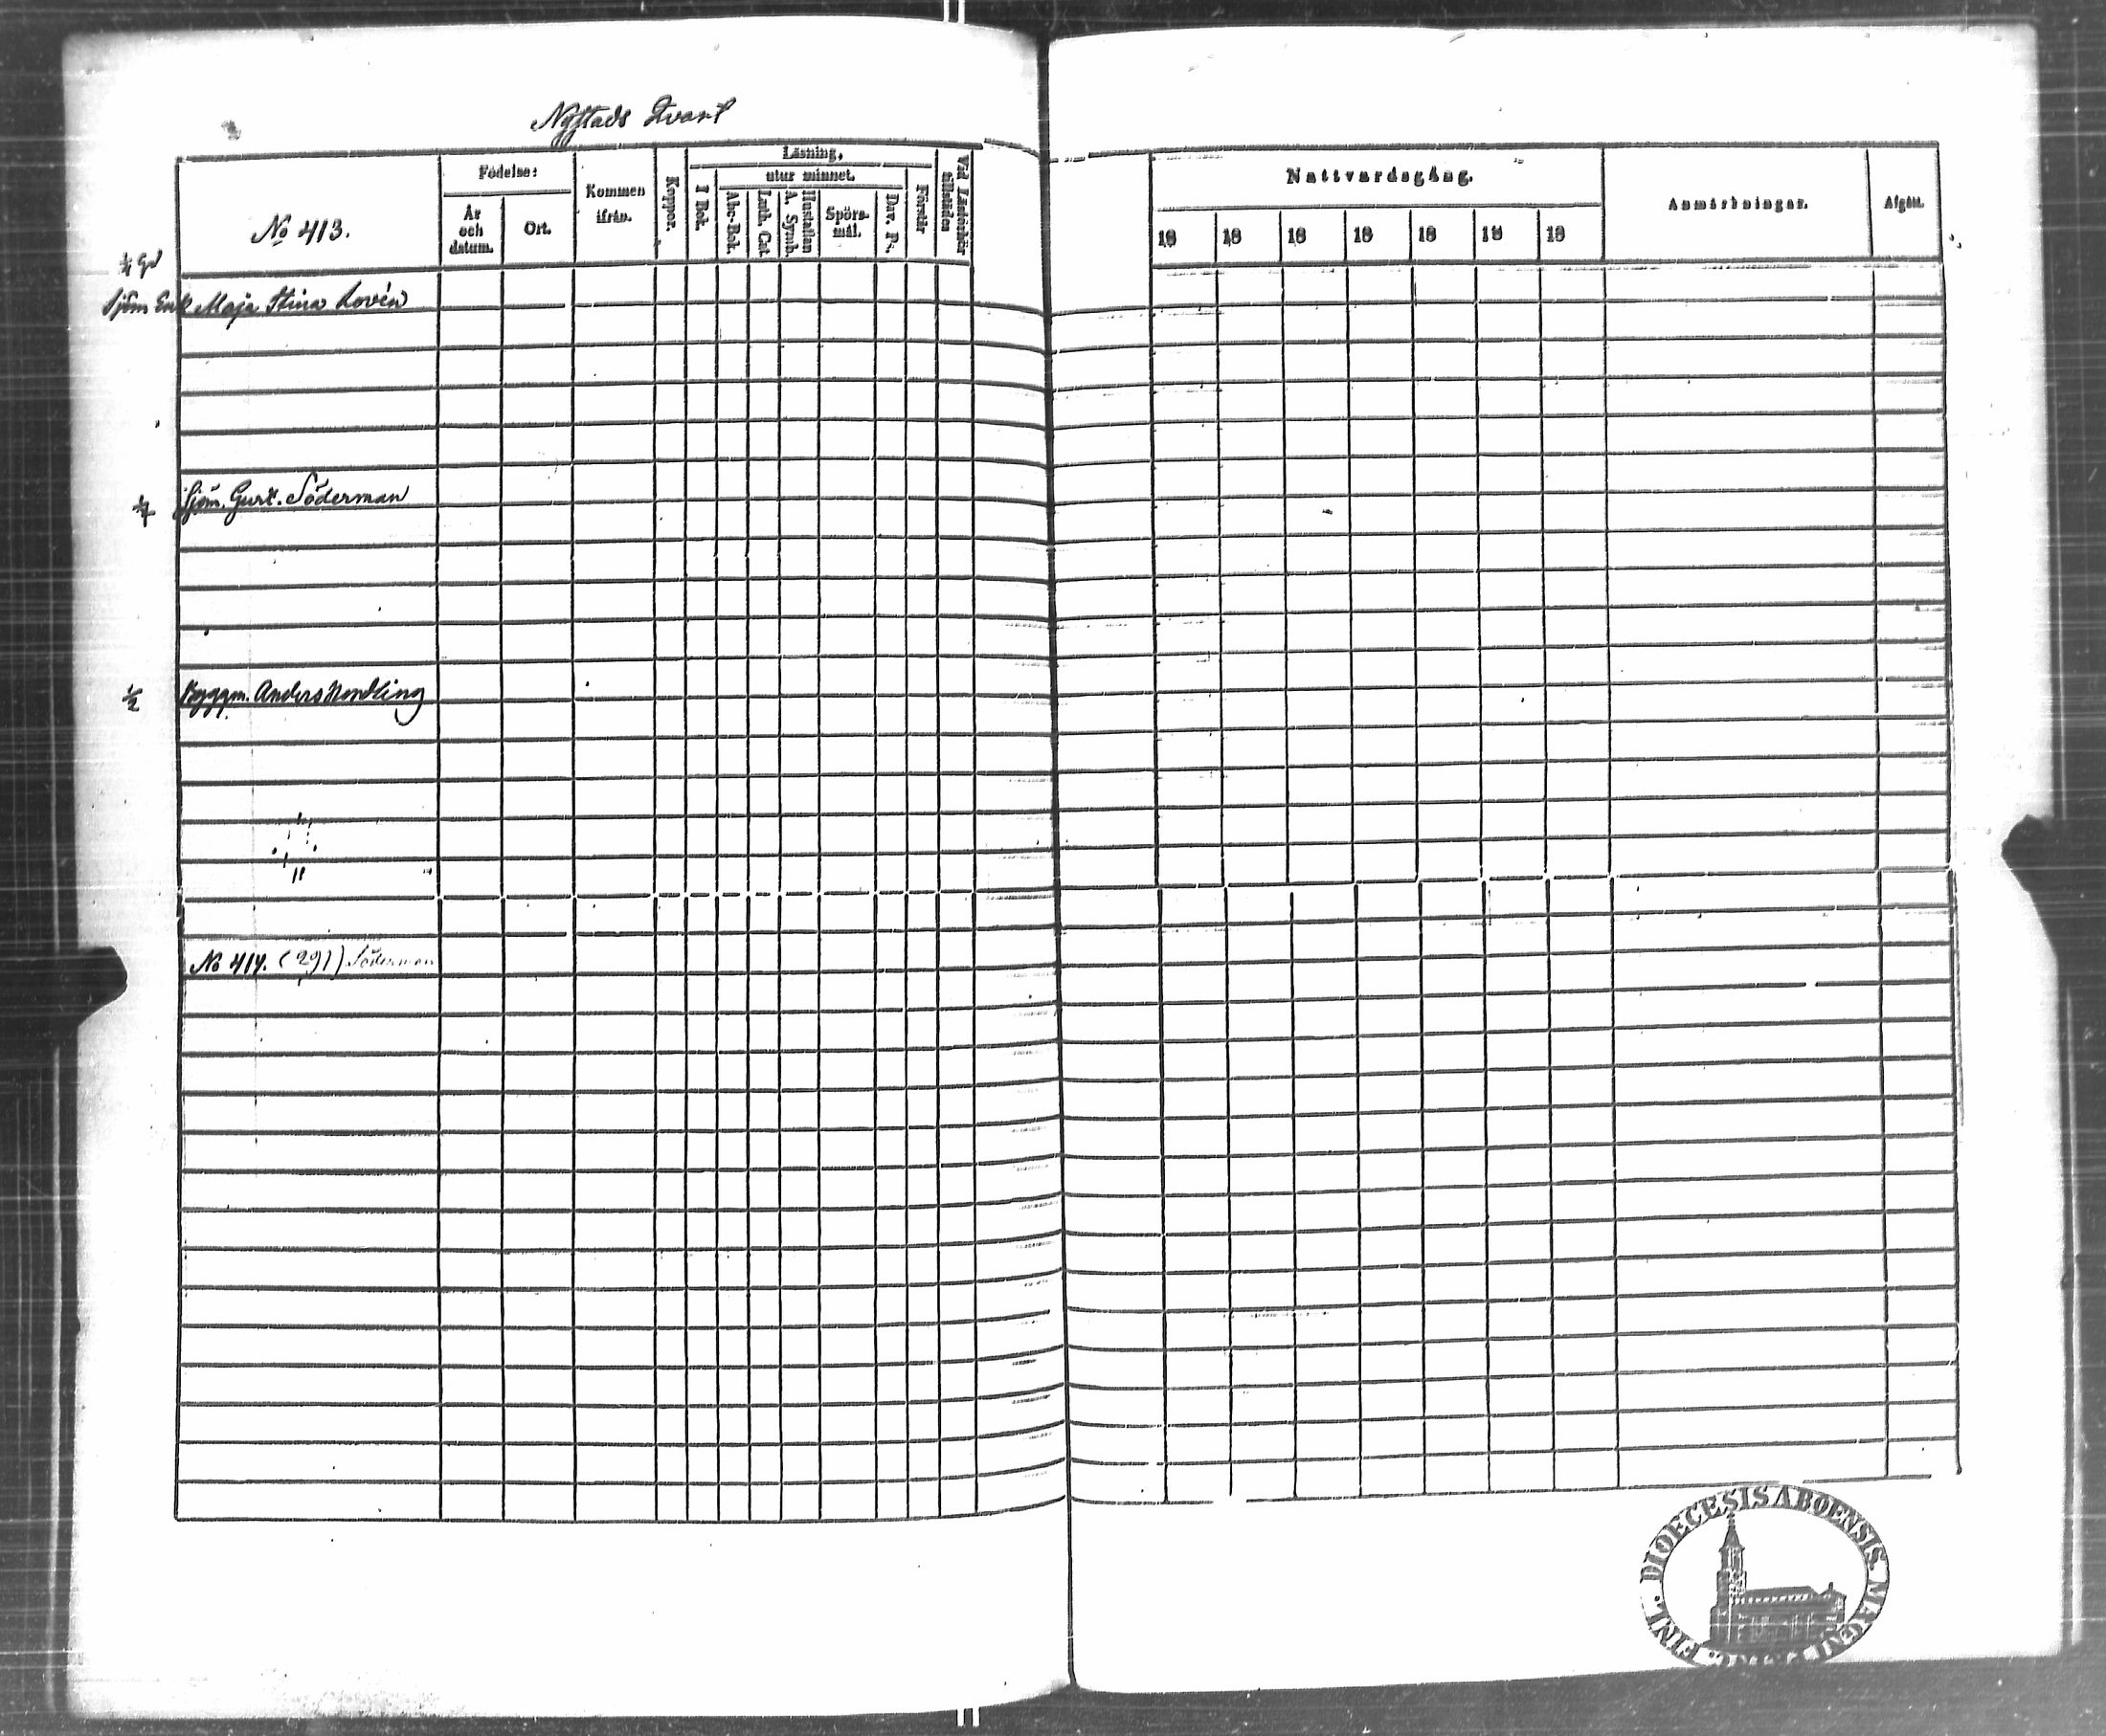 Nystads Qvart
Födelse:
Kommen
ifrån.
Koppor.
Läsning,
I Bok.
utur minnet.
Abc-Bok.
Luth. Cat.
Hustaflan
A. Symb.
Spörs-
mål.
Dav. Ps.
Förstår
Vid Läsförhör
tillstädes
År
och
datum.
Ort.
No 413.
Nattvardsgång.
18 18 18 18 18 18 18
Anmärkningar.
Afgått.
1/4 Gd
Sjöm Enk Maja Stina Lovén
1/4 Sjöm. Gust. Söderman
1/2 Byggm. Anders Nordling
No 414. (291) Söderman
FINL. DIOECESIS ABOENSIS. MAGNI PRINC.